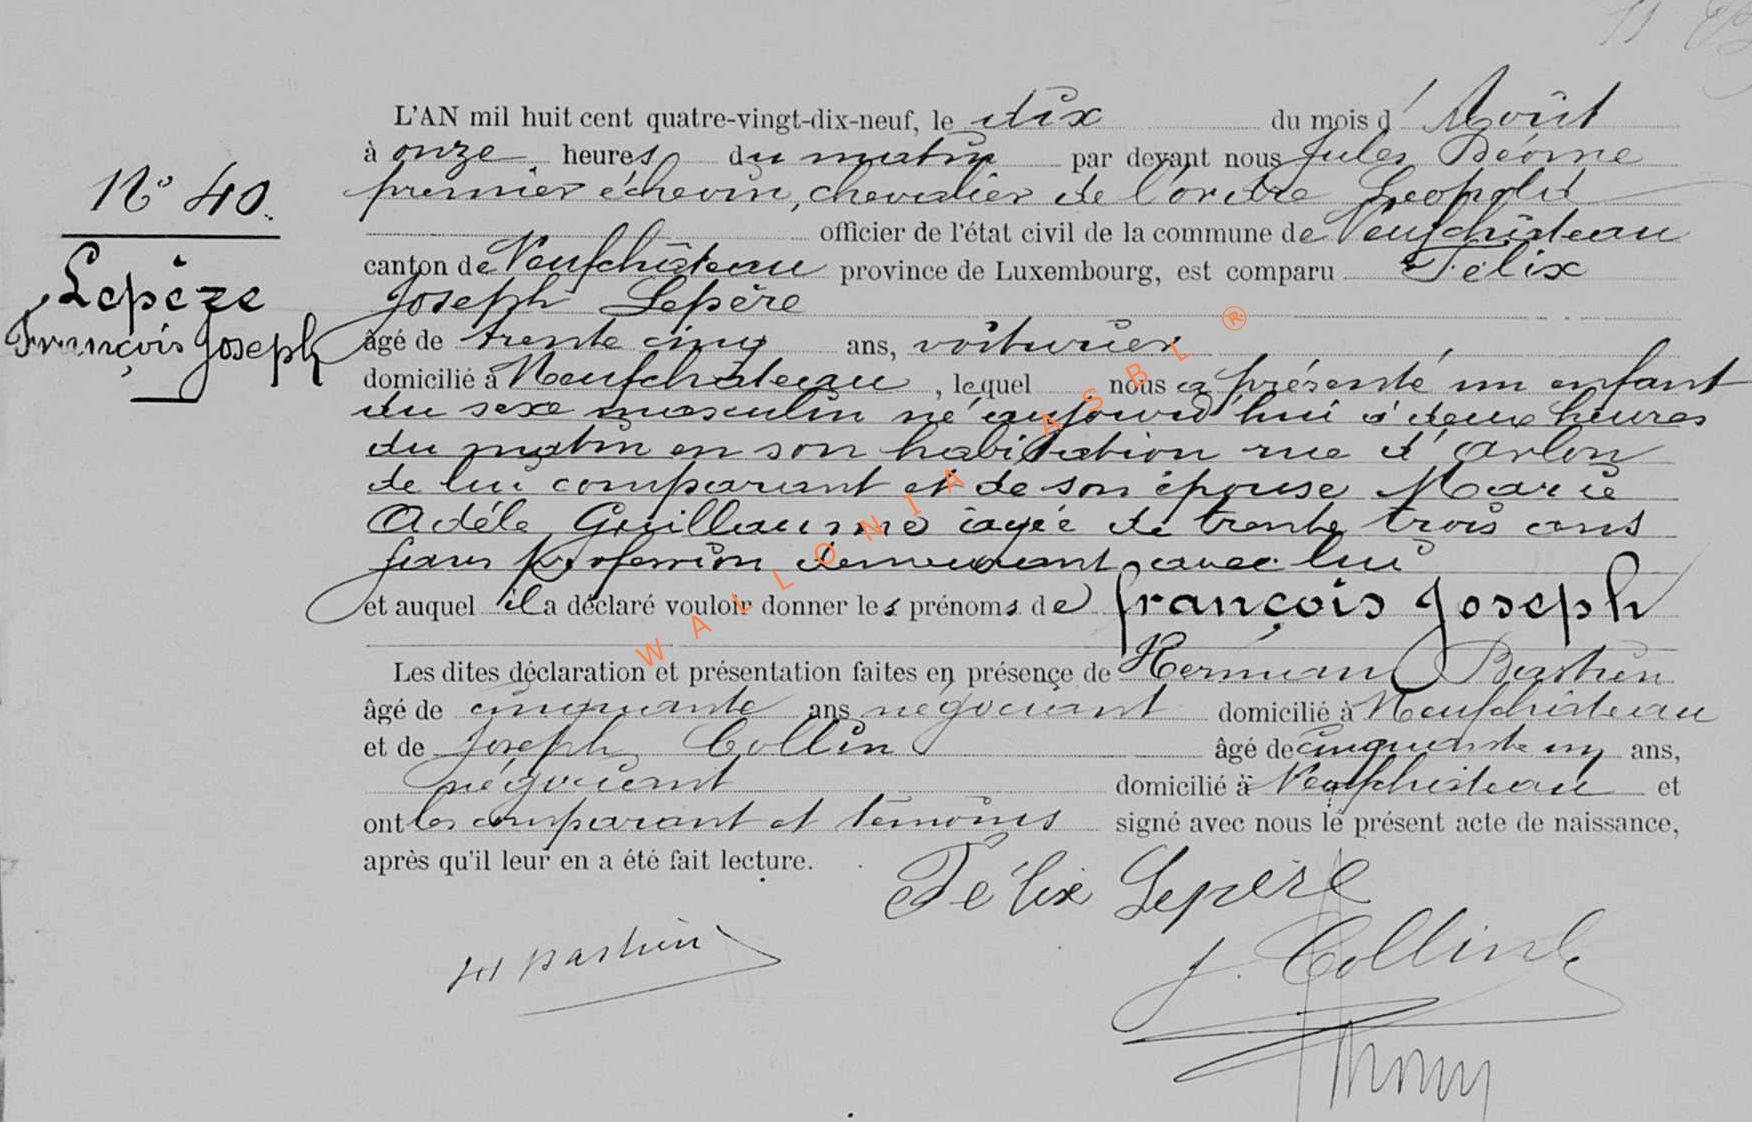 N° 40.
Lepère
François Joseph
L'AN mil huit cent quatre-vingt-dix-neuf, le dix du mois d'Août
à onze heures du matin par devant nous Jules Déome
premier échevin, chevalier de l'ordre Leopold
officier de l'état civil de la commune de Neufchâteau
canton de Neufchâteau province de Luxembourg, est comparu Félix
Joseph Lepère
âgé de trente cinq ans, voiturier
domicilié à Neufchâteau, lequel nous a présenté un enfant
du sexe masculin né aujourd'hui à deux heures
du matin en son habitation rue d'Arlon
de lui comparant et de son épouse Marie
Adéle Guillaume âgée de trente trois ans
sans profession demeurant avec lui
et auquel il a déclaré vouloir donner les prénoms de François Joseph
Les dites déclaration et présentation faites en présence de Herman Bastien
âgé de cinquante ans négociant domicilié à Neufchâteau
et de Joseph Collin âgé de cinquante un ans,
négociant domicilié à Neufchâteau et
ont les comparant et témoins signé avec nous le présent acte de naissance,
après qu'il leur en a été fait lecture.
Félix Lepère
Bastien
J. Collin
WALLONIA ASBL ®